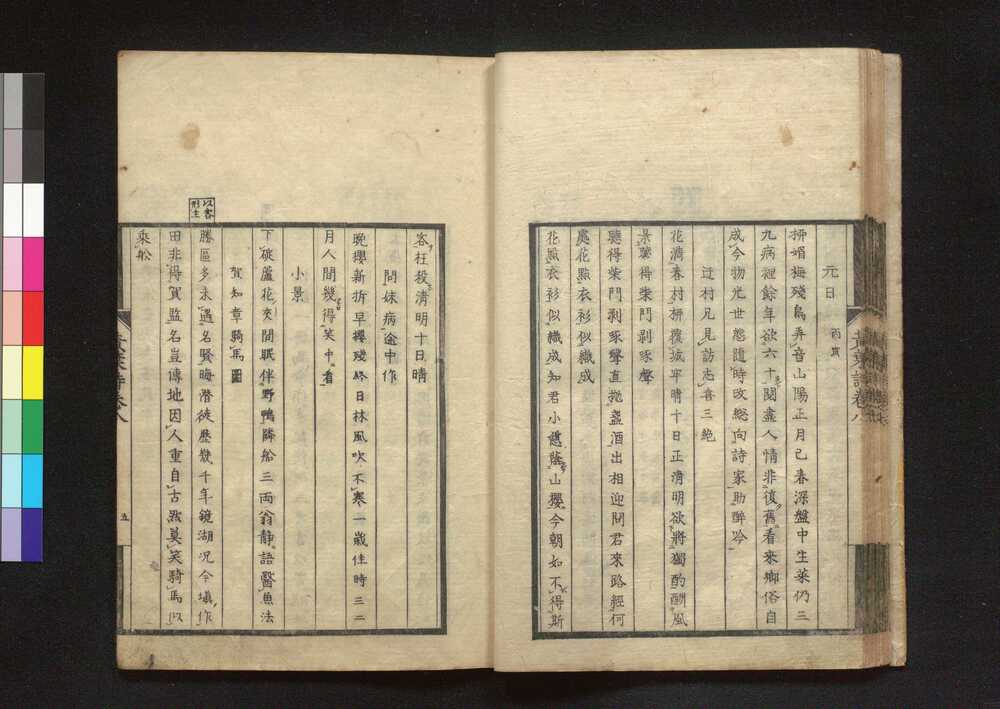 元日 丙寅
楊媚梅殘鳥弄音山陽正月已春深盤中生菜仍三
九病裡餘年欲六十閱盡人情非復舊看來鄉俗自
成今物光世態隨時改總向詩家助醉吟
辻村兄見訪志喜三絶
花滿春村柳覆城平晴十日正清明欲將獨酌酬風
景驚得柴門剥啄聲
聽得柴門剥啄聲直抛盞酒出相迎問君來路經何
處花點衣衫似織成
花點衣衫似織成知君小憩蔭山櫻今朝如不得斯
客枉投清明十日晴
問妹病途中作
晩櫻新拆早櫻殘終日林風吹不寒一歳佳時三二
月人間幾得笑中看
小景
下破蘆花夾間眠伴野鴨隣船三両翁静語醫魚法
賀知章騎馬圖
勝區多未遇名賢晦潛徒歴幾千年鏡湖况今塡作
田非得賀監名豈傳地因人重自古然莫笑騎馬似
乘船
以客形主
黄葉詩卷八
五
黄葉詩卷八